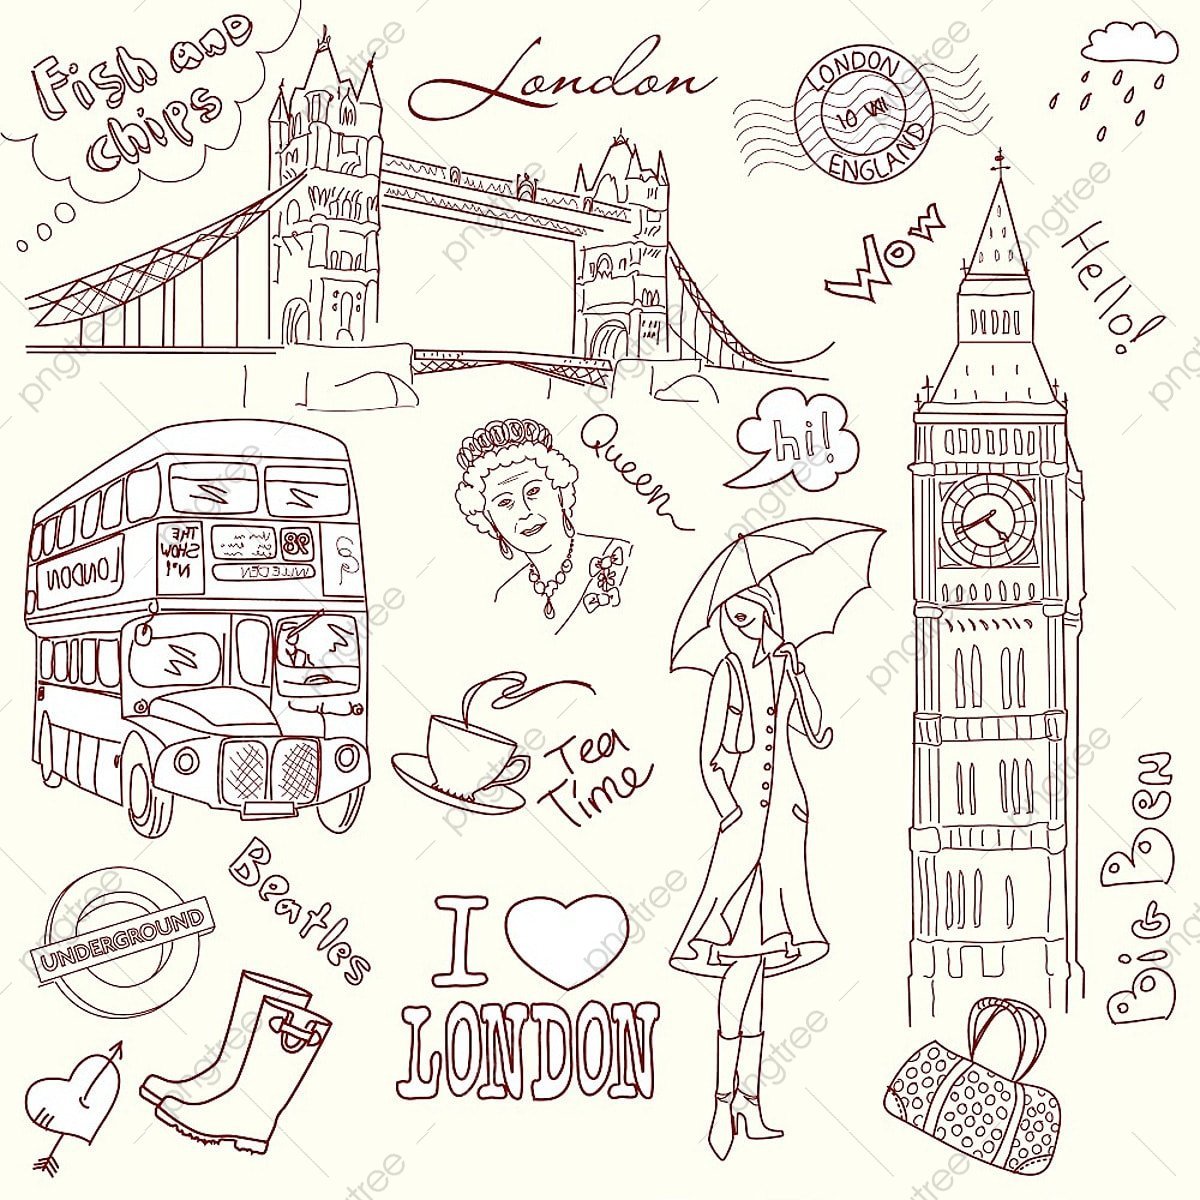 Fish and
chips
London
LONDON
10 VIII
ENGLAND
Wow
Hello!
hi!
Queen
THE
SHOW
Nº1
98
WILLEDEN
LONDON
Tea
Time
Big Ben
Beatles
UNDERGROUND
I
LONDON
pngtree